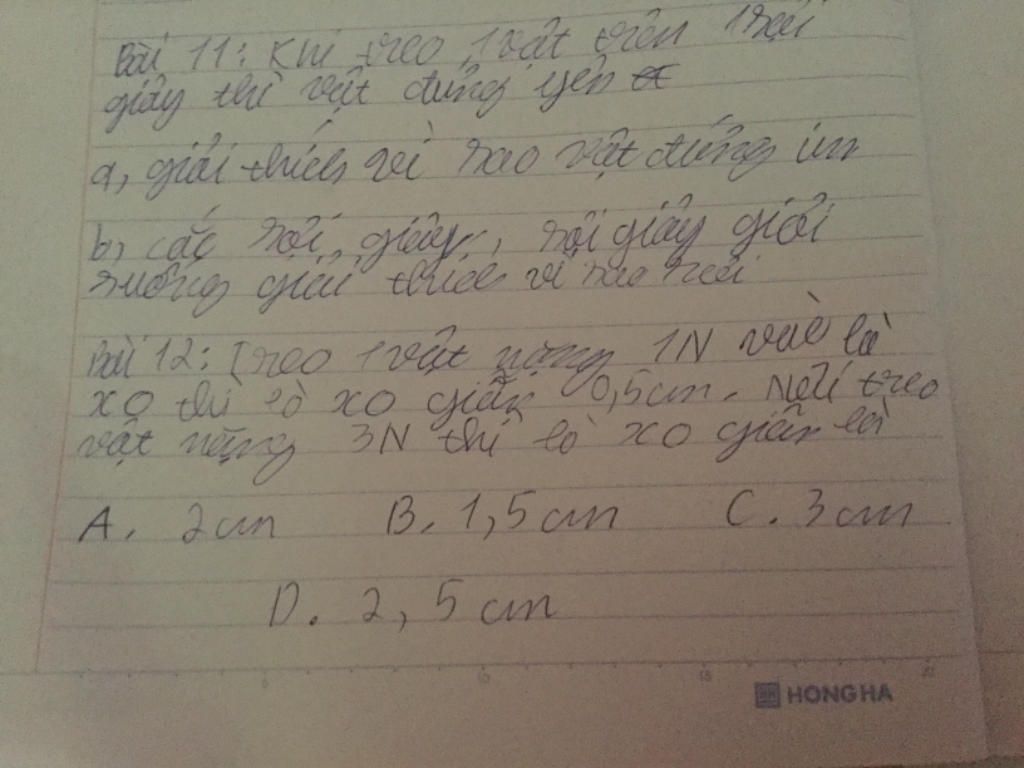 Bài 11: Khi treo 1 vật trên 1 sợi
giây thì vật đứng yên
a, giải thích vì sao vật đứng im
b, cắt sợi giây, sợi giây giời
xuống giải thích vì sao
Bài 12: Treo 1 vật nặng 1N vào lò
xo thì lò xo giãn 0,5cm. Nếu treo
vật nặng 3N thì lò xo giãn là
A. 2cm B. 1,5cm C. 3cm
D. 2,5cm
5 10 15 20
HONG HA